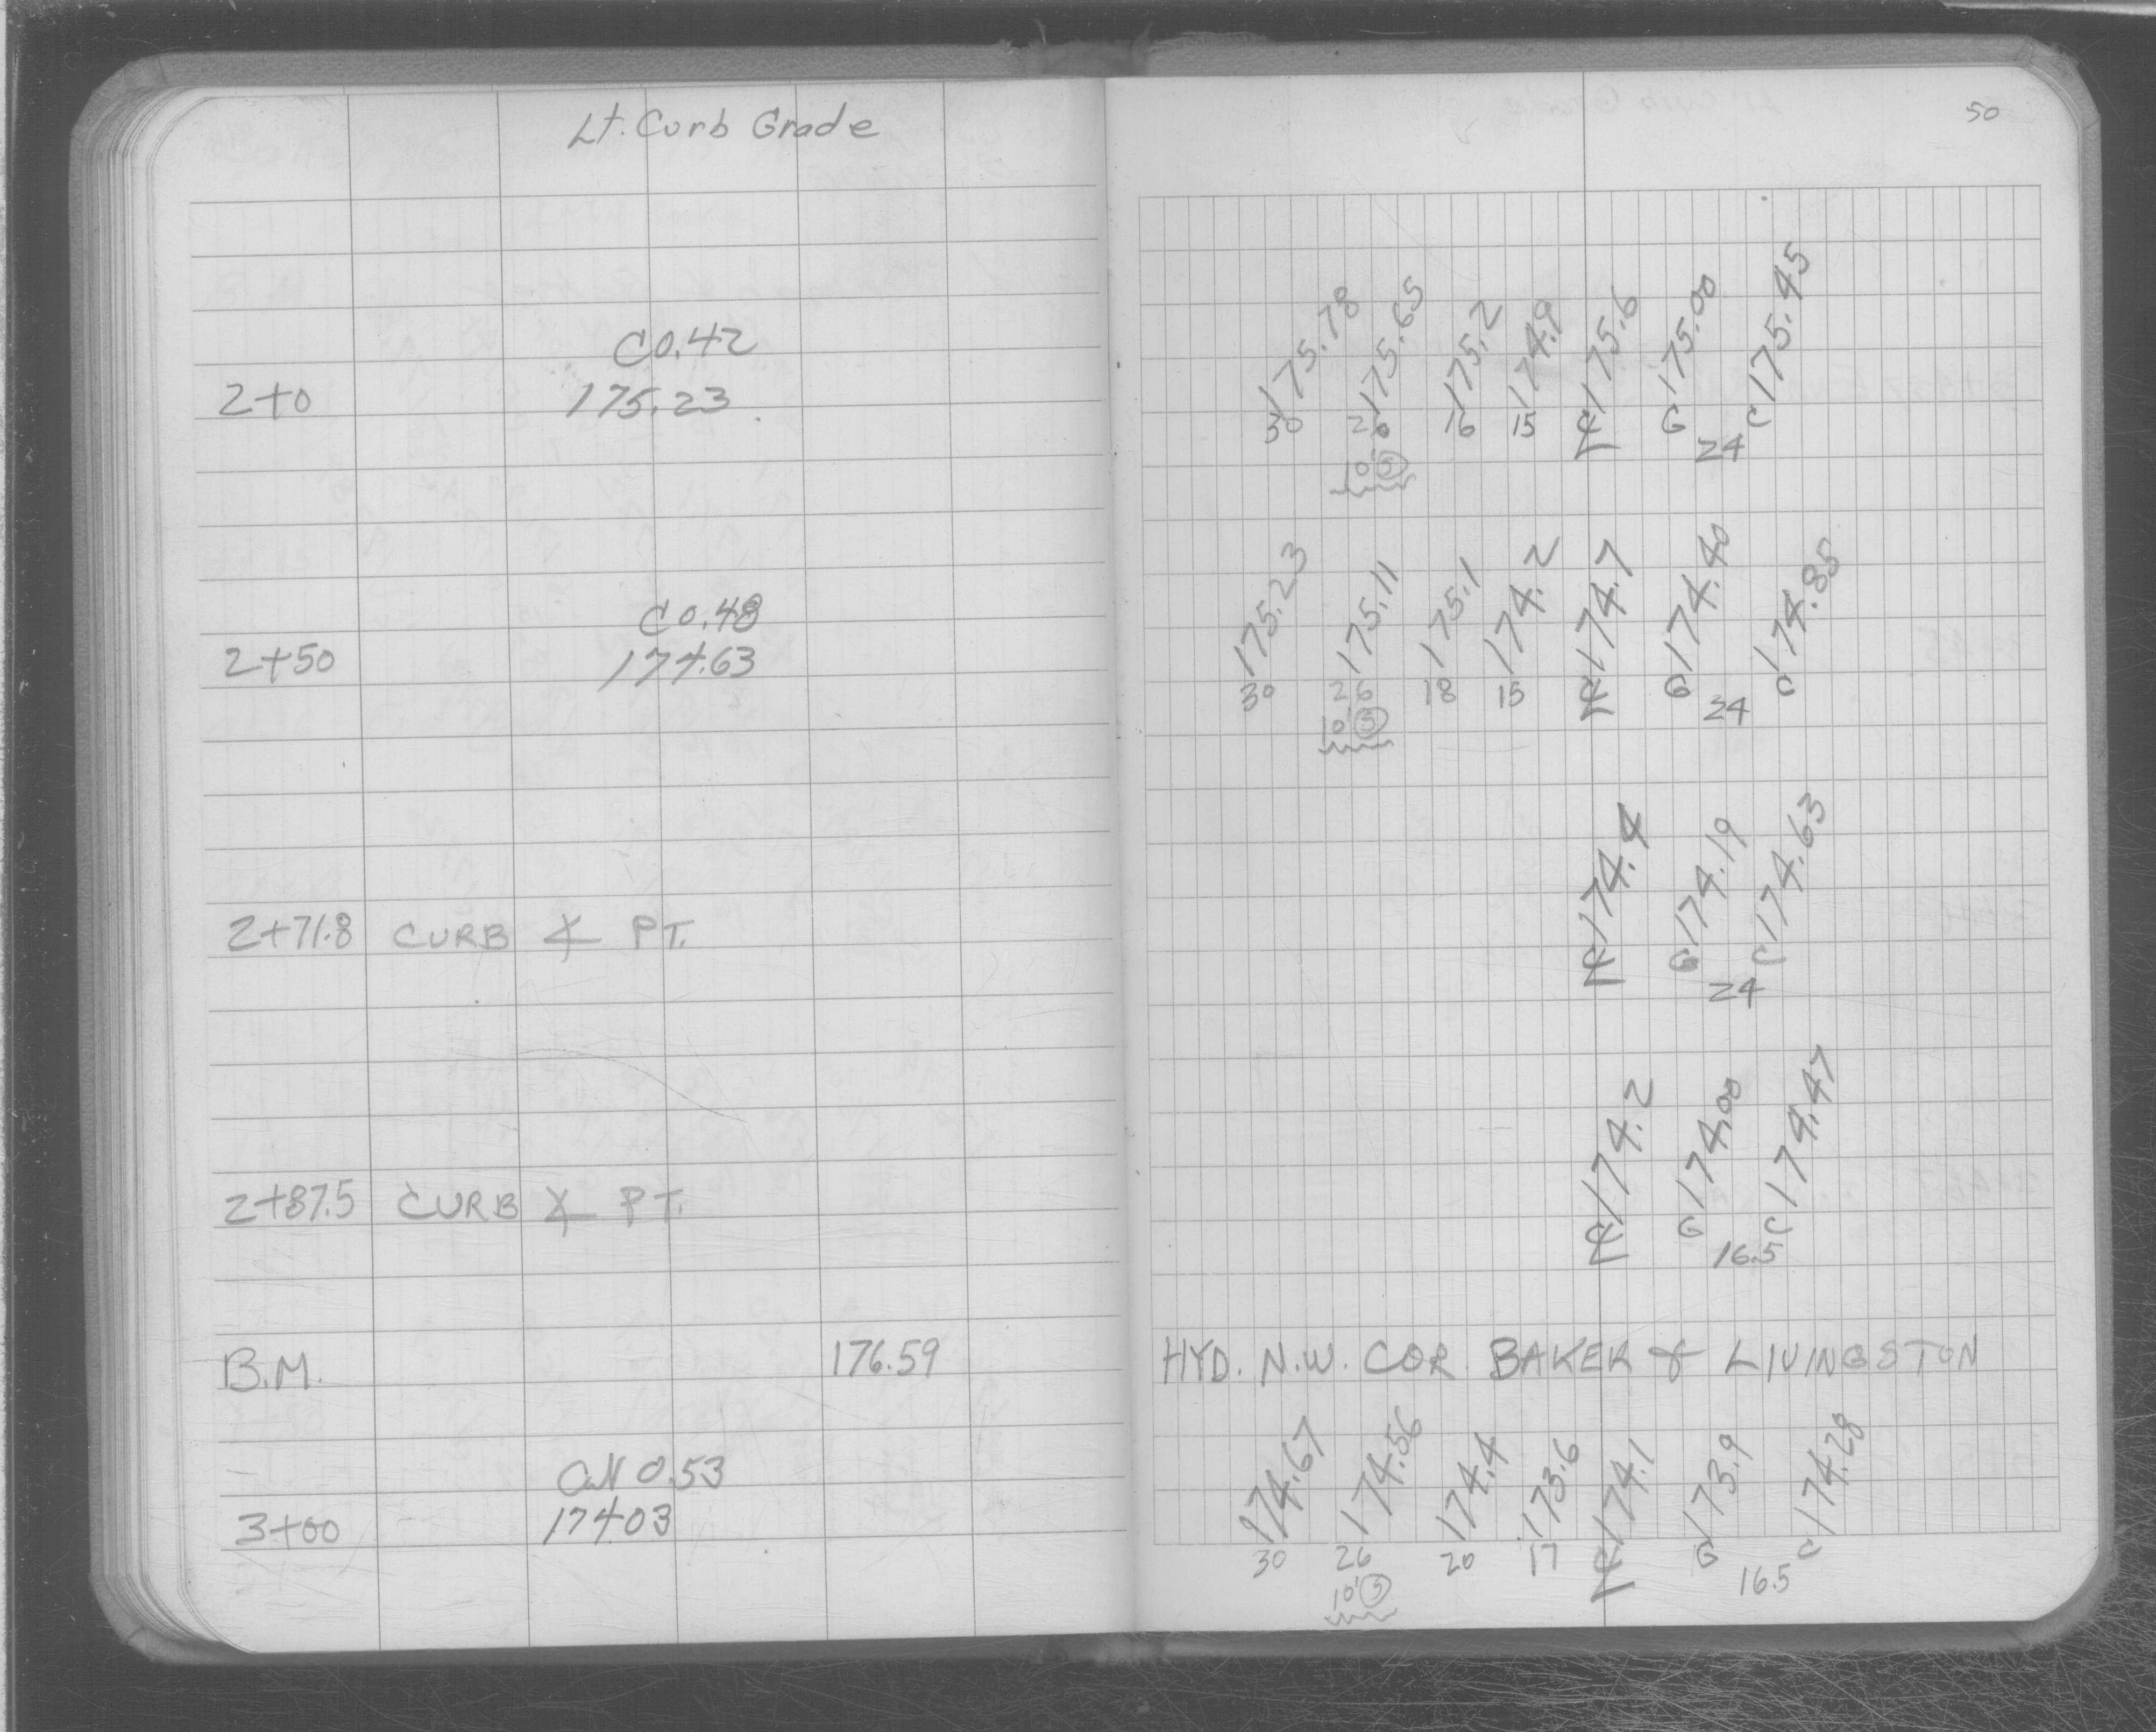 Lt. Curb Grade
C 0.42
2+0 175.23
C 0.48
2+50 174.63
2+71.8 CURB ∡ PT.
2+87.5 CURB ∡ PT.
B.M. 176.59
Cut 0.53
3+00 17403
50
175.78 175.65 175.2 174.9 ℄ 175.6 G 175.00 C 175.45
30 26 16 15 24
10' ⑤
175.23 175.11 175.1 174.2 ℄ 174.7 G 174.40 C 174.85
30 26 18 15 24
10' ⑤
℄ 174.4 G 174.19 C 174.63
24
℄ 174.2 G 174.00 C 174.47
16.5
HYD. N.W. COR. BAKER & LIVINGSTON
174.67 174.56 174.4 173.6 ℄ 174.1 G 173.9 C 174.28
30 26 20 17 16.5
10' ⑤